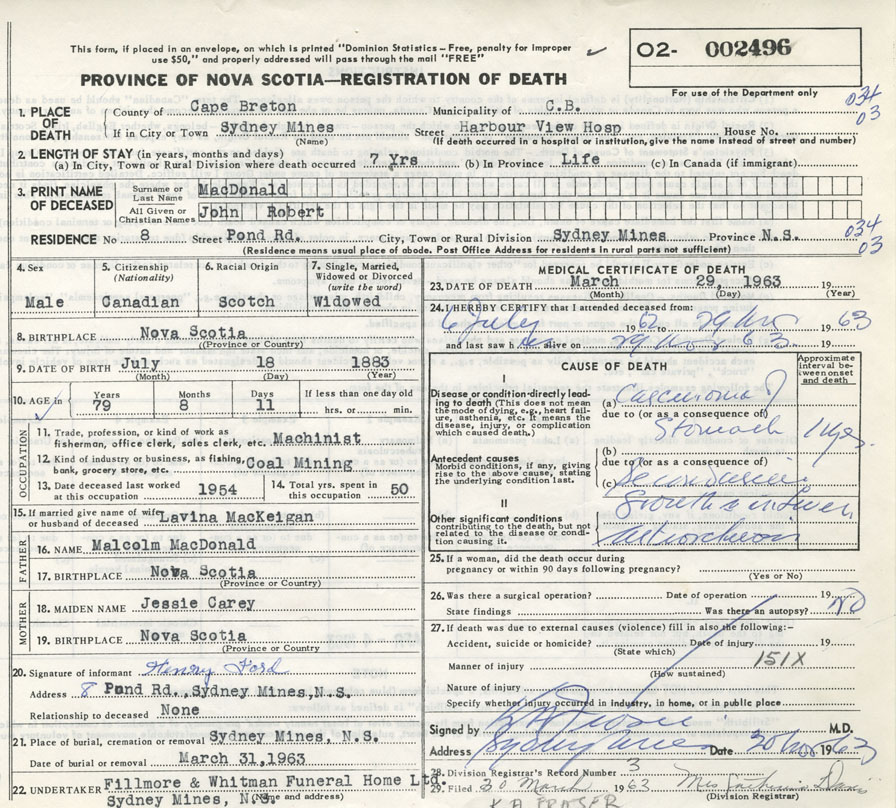 This form, if placed in an envelope, on which is printed "Dominion Statistics – Free, penalty for Improper
use $50," and properly addressed will pass through the mail "FREE"
O2- 002496
PROVINCE OF NOVA SCOTIA—REGISTRATION OF DEATH
For use of the Department only
034
03
1. PLACE OF DEATH
County of Cape Breton Municipality of C.B.
If in City or Town Sydney Mines Street Harbour View Hosp House No.
(Name) (If death occurred in a hospital or institution, give the name instead of street and number)
2. LENGTH OF STAY (in years, months and days)
(a) In City, Town or Rural Division where death occurred 7 Yrs (b) In Province Life (c) In Canada (if immigrant)
3. PRINT NAME OF DECEASED
Surname or Last Name MacDonald
All Given or Christian Names John Robert
RESIDENCE No 8 Street Pond Rd. City, Town or Rural Division Sydney Mines Province N.S.
034
03
(Residence means usual place of abode. Post Office Address for residents in rural parts not sufficient)
4. Sex
Male
5. Citizenship
(Nationality)
Canadian
6. Racial Origin
Scotch
7. Single, Married,
Widowed or Divorced
(write the word)
Widowed
8. BIRTHPLACE Nova Scotia
(Province or Country)
9. DATE OF BIRTH July 18 1883
(Month) (Day) (Year)
10. AGE in Years 79 Months 8 Days 11 If less than one day old hrs. or min.
OCCUPATION
11. Trade, profession, or kind of work as
fisherman, office clerk, sales clerk, etc. Machinist
12. Kind of industry or business, as fishing,
bank, grocery store, etc. Coal Mining
13. Date deceased last worked
at this occupation 1954
14. Total yrs. spent in
this occupation 50
15. If married give name of wife
or husband of deceased Lavina MacKeigan
FATHER
16. NAME Malcolm MacDonald
17. BIRTHPLACE Nova Scotia
(Province or Country)
MOTHER
18. MAIDEN NAME Jessie Carey
19. BIRTHPLACE Nova Scotia
(Province or Country
20. Signature of informant Henry Ford
Address 8 Pond Rd., Sydney Mines, N.S.
Relationship to deceased None
21. Place of burial, cremation or removal Sydney Mines, N.S.
Date of burial or removal March 31, 1963
22. UNDERTAKER Fillmore & Whitman Funeral Home Ltd.
Sydney Mines, N.S.
(Name and address)
MEDICAL CERTIFICATE OF DEATH
23. DATE OF DEATH March 29, 1963 19
(Month) (Day) (Year)
24. I HEREBY CERTIFY that I attended deceased from:
6 July 1962 to 29 Mar 19 63
and last saw h alive on 29 Mar 63 19
CAUSE OF DEATH
Approximate
interval between onset
and death
I
Disease or condition directly leading
to death (This does not mean
the mode of dying, e.g., heart failure,
asthenia, etc. It means the
disease, injury, or complication
which caused death.)
(a) Carcinoma of
due to (or as a consequence of)
Stomach 1 yr
Antecedent causes
Morbid conditions, if any, giving
rise to the above cause, stating
the underlying condition last.
(b)
due to (or as a consequence of)
(c) Secondaries
Growths in Liver
II
Other significant conditions
contributing to the death, but not
related to the disease or condition
causing it.
25. If a woman, did the death occur during
pregnancy or within 90 days following pregnancy?
(Yes or No)
26. Was there a surgical operation? Date of operation 19
State findings Was there an autopsy? No
27. If death was due to external causes (violence) fill in also the following:–
Accident, suicide or homicide? Date of injury 19
(State which)
Manner of injury 151X
(How sustained)
Nature of injury
Specify whether injury occurred in industry, in home, or in public place
Signed by M.D.
Address Sydney Mines Date 30 Mar 1963
28. Division Registrar's Record Number 3
29. Filed 30 March 1963
(Division Registrar)
K A FRASER